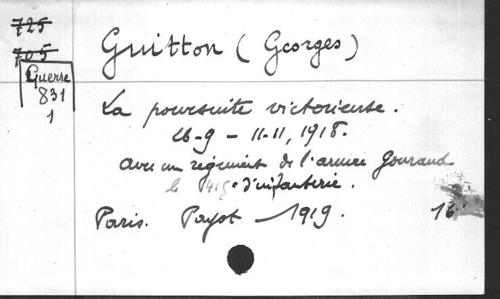 725
705
Guerre
831
1
Guitton (Georges)
La poursuite victorieuse.
26-9 - 11-11, 1918.
avec un régiment de l'armée Gouraud
le 415e d'infanterie.
Paris. Payot _ 1919. 16